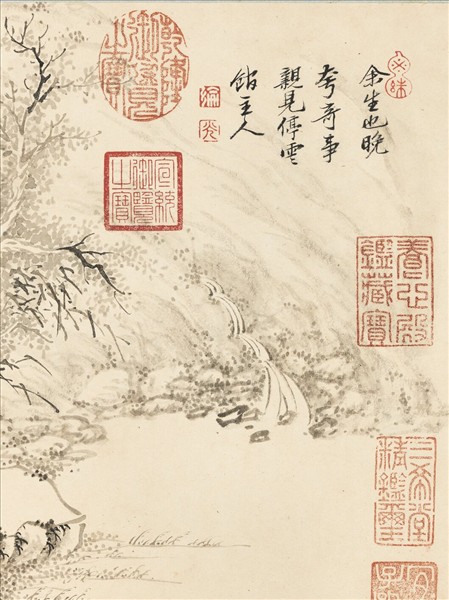 余生也晚
夸奇事
親見停雲
館主人
乾隆
御覽
之寶
宣統
御覽
之寶
養心殿
鑑藏寶
三希堂
精鑑璽